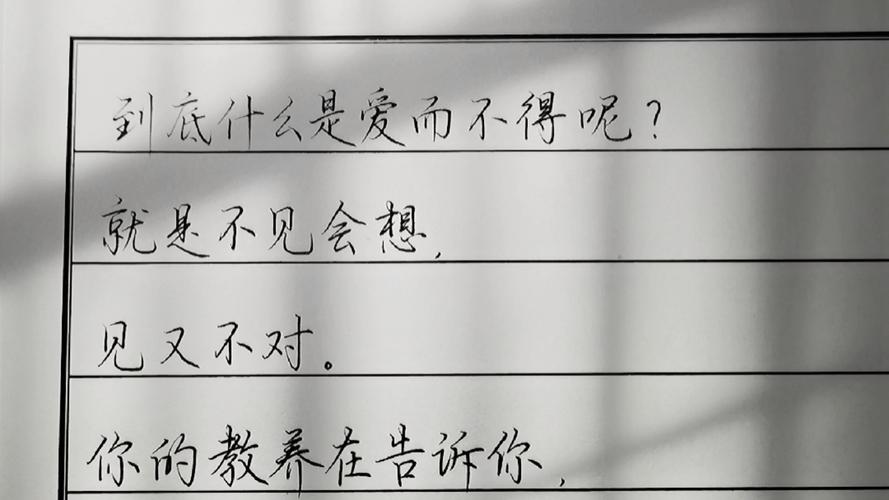 到底什么是爱而不得呢？
就是不见会想，
见又不对。
你的教养在告诉你，